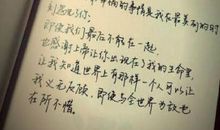 的事情是我在最美的时
刻遇见你，
即使我们最后不能在一起，
也感谢上帝让你出现在了我的生命里，
让我知道世界上有那样一个人可以让
我义无反顾，即使与全世界为敌也
在所不惜。